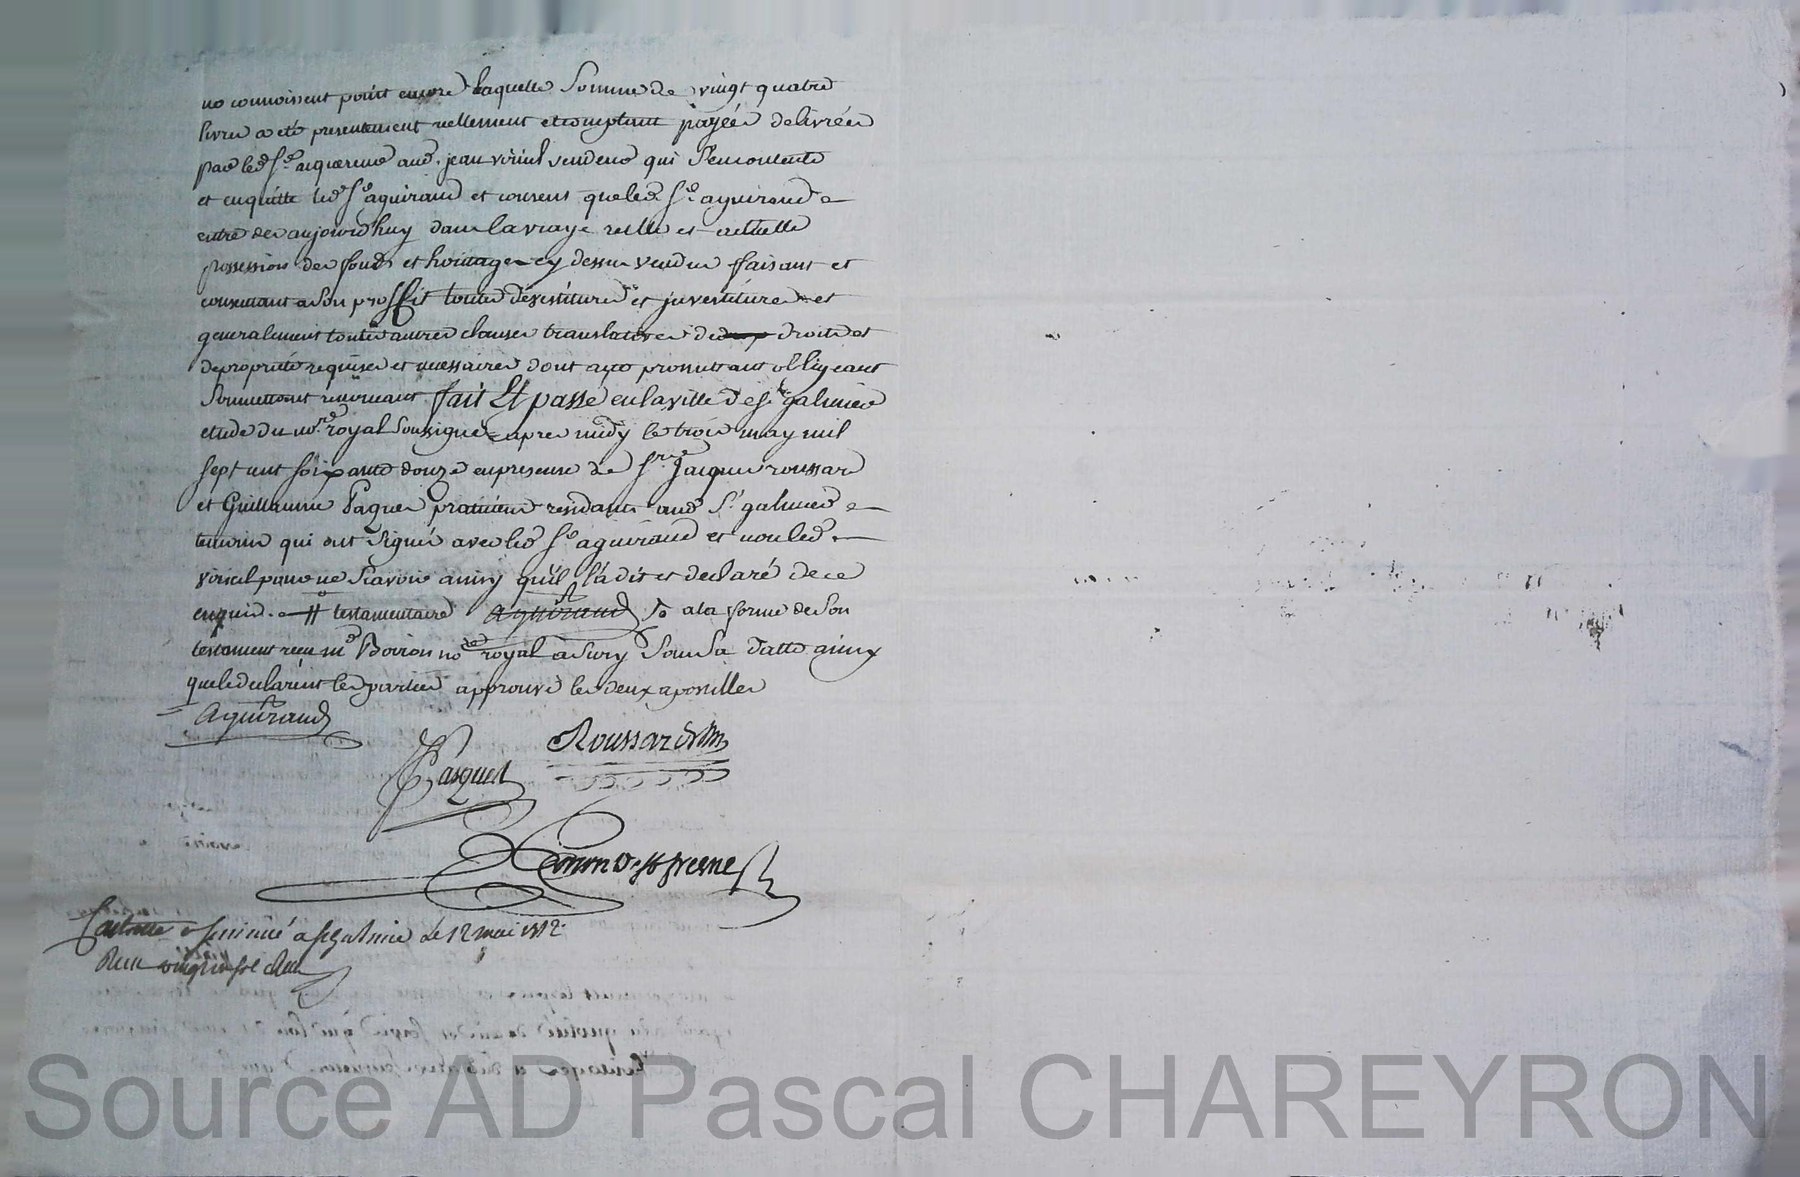 ne connoissent point encore laquelle somme de vingt quatre
livres a eté presentement reellement et comptant payéés delivréés
par led sr. acquereur aud. jean virieul vendeur qui s'en contente
et en quitte led sr aguiraud et consent que led. sr. aguiraud
entre des aujourd'huy dans la vraye reelle et actuelle
possession des fonds et heritages cy dessus vendus faisant et
consentant a son proffit toutes désvestitures et jnvestitures et
generalement toutes autres clauses translatives de droits et
de proprieté requises et necessaires dont acte promettant obligeant
soumettant renonceant fait Et passé en la ville de st galmier
etude du nore. royal soussigné apres midy le trois may mil
sept cent soixante douze en presence de sieurs Jacques roussar
et Guillaume Paquet praticiens residants aud St galmier
temoins qui ont signé avec led sr. aguiraud et non led.
virieul pour ne scavoir ainsy qu'il l'a dit et declaré de ce
enquis. # testamentaire aguiraud a la forme de son
testament recu me Boiron nore royal a sury sous sa datte ainsy
que le declarent les parties approuvé les deux apostilles
Aguiraud
Pasquet Roussar
Controllé & insinué a st galmier le 12 mai 1772.
Recu vingt un sol
Source AD Pascal CHAREYRON